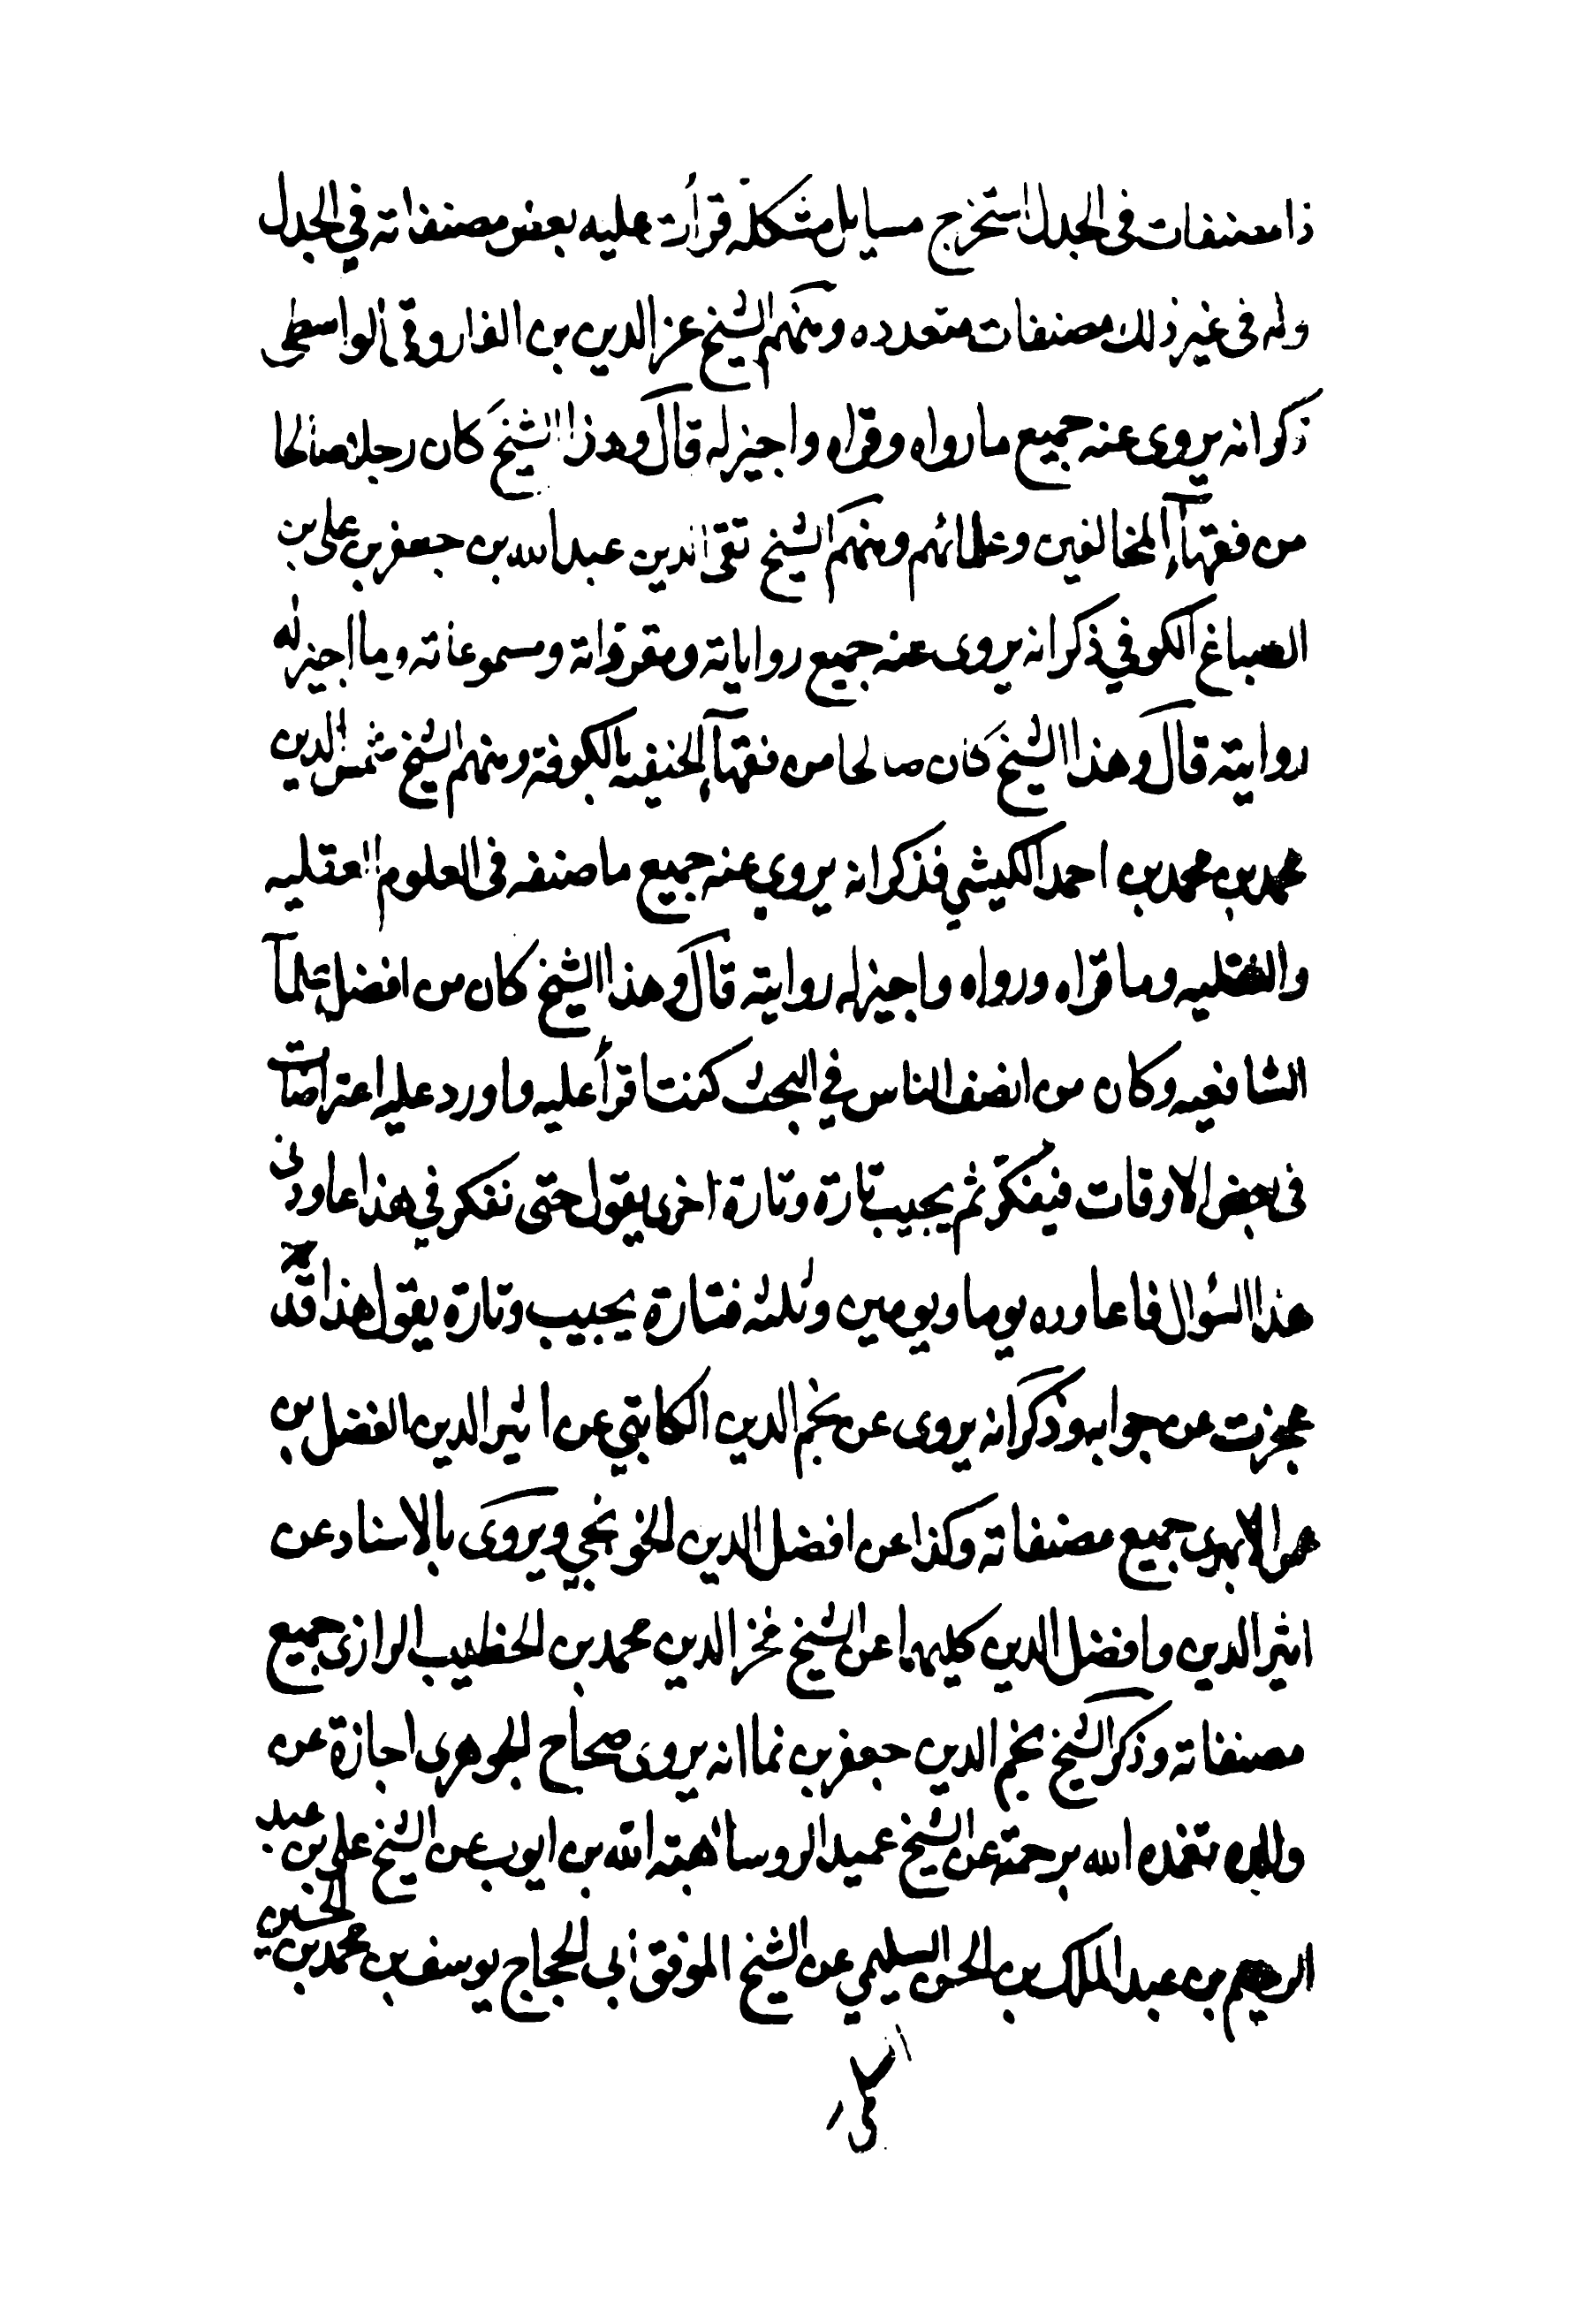 ذا مصنفات في الجدل استخرج مسايل مشكلة قرأت عليه بعض مصنفاته في الجدل
وله في غير ذلك مصنفات متعدده ومنهم الشيخ عز الدين بن الفاروقي الواسطي
ذكر انه يروى عنه جميع ما رواه وقراه واجيز له قال وهذا الشيخ كان رجلا صالحا
من فقهآء المخالفين وعلمائهم ومنهم الشيخ تقي الدين عبد الله بن جعفر بن علي بن
الصباغ الكوفي ذكر انه يروى عنه جميع رواياته ومقرواته ومسموعاته وما اجيز له
روايته قال وهذا الشيخ كان صالحا من فقهآء الحنفيه بالكوفة ومنهم الشيخ شمس الدين
محمد بن محمد بن احمد الكيشي فذكر انه يروي عنه جميع ما صنفه في العلوم العقليه
والنقليه وما قراه ورواه واجيز له روايته قال وهذا الشيخ كان من افضل علمآ
الشافعيه وكان من انصف الناس في البحث كنت اقرأ عليه واورد عليه اعتراضات
في بعض الاوقات فيفكر ثم يجيب تارة وتارة اخرى يقول حتى نفكر في هذا عاودني
هذا السؤال فاعاوده يوما ويومين وثلثه فتارة يجيب وتارة يقول هذا قد
عجزت عن جوابه وذكر انه يروى عن نجم الدين الكاتبي عن اثير الدين الفضل بن
عمر الابهرى جميع مصنفاته وكذا عن افضل الدين الخونجي ويروى بالاسناد عن
اثير الدين وافضل الدين كليهما عن الشيخ فخر الدين محمد بن الخطيب الرازى جميع
مصنفاته وذكر الشيخ نجم الدين جعفر بن نما انه يروى صحاح الجوهرى اجازة عن
والده تغمده الله برحمته عن الشيخ عميد الروسا هبة الله بن ايوب عن الشيخ علي بن عبد
الرحيم بن عبد الملك بن الحسن السليمي عن الشيخ الموفق ابى الحجاج يوسف بن محمد بن الحسين